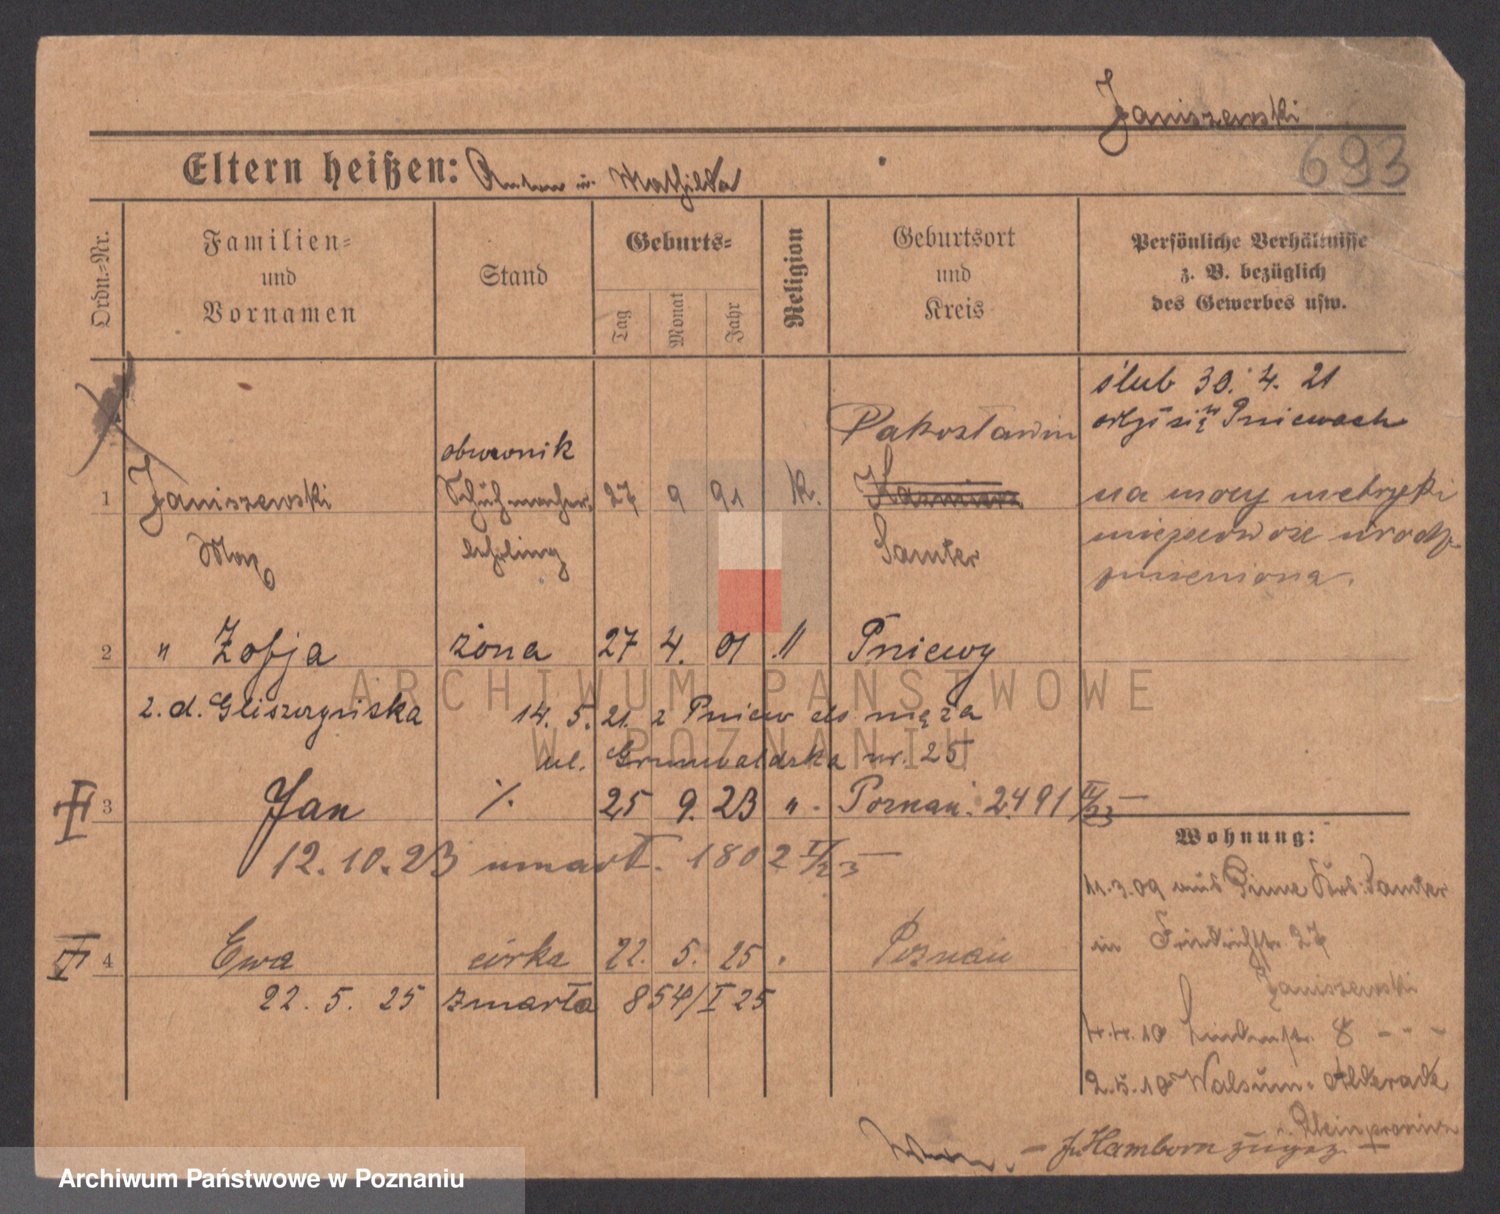 Janiszewski
693
Eltern heißen: Anton u. Mathilda
Ordn.-Nr.
Familien-
und
Vornamen
Stand
Geburts-
Tag
Monat
Jahr
Religion
Geburtsort
und
Kreis
Persönliche Verhältnisse
z. B. bezüglich
des Gewerbes usw.
ślub 30. 4. 21
się w Pniewach
1 Janiszewski
Max
obuwnik
Schuhmacher
lehrling
27 9 91 k.
Pakosławin
Kazmierz
Samter
na mocy metryki
urodz.
zmieniona.
2 " Zofja żona 27 4. 01 " Pniewy
z. d. Gliszczyńska 14. 5. 21. z Pniew do męża
ul. Grunwaldska nr. 25
III 3 Jan /. 25 9. 23 " . Poznań. 2491 II/23
12. 10. 23 umarł. 1802 II/23
Wohnung:
11. 3. 09 aus Pinne Krs. Samter
in Friedrichstr. 27
Janiszewski
4. 4. 10 Lindenstr. 8 - - -
2. 5. 10 Walsum-Aldenrade
Rheinprovinz
- f. Hamborn zugez. -
4 Ewa córka 22. 5. 25 . Poznań
22. 5. 25 zmarła 854/I 25
ARCHIWUM PAŃSTWOWE
W POZNANIU
Archiwum Państwowe w Poznaniu